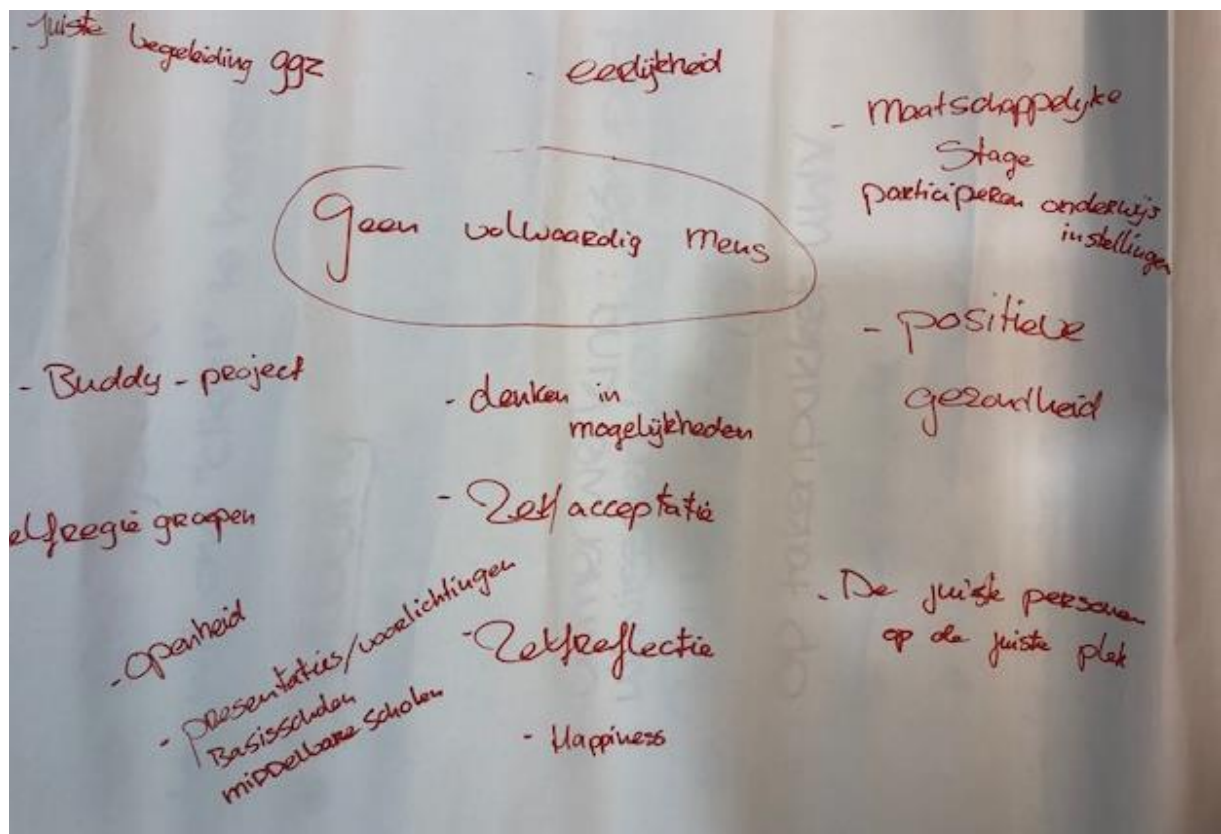 - Juiste begeleiding ggz
- eerlijkheid
- Maatschappelijke
Stage
participeren onderwijs
instellingen
Geen volwaardig mens
- positieve
gezondheid
- Buddy-project
- denken in
mogelijkheden
elfregie groepen
- Zelfacceptatie
- openheid
- presentaties/voorlichtingen
Basisscholen
middelbare scholen
- Zelfreflectie
- Happiness
- De juiste personen
op de juiste plek